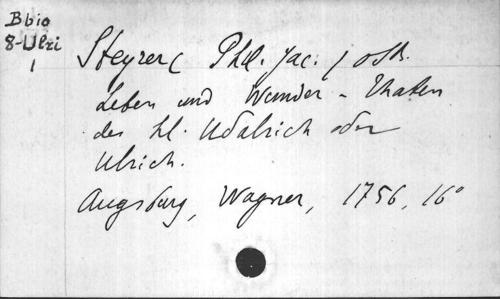 Bbio
8-Ulri
1
Steyrer ( Phil. Jac. ) OSB.
Leben und Wunder-Thaten
des hl. Udalrich oder
Ulrich.
Augsburg, Wagner, 1756, 16°